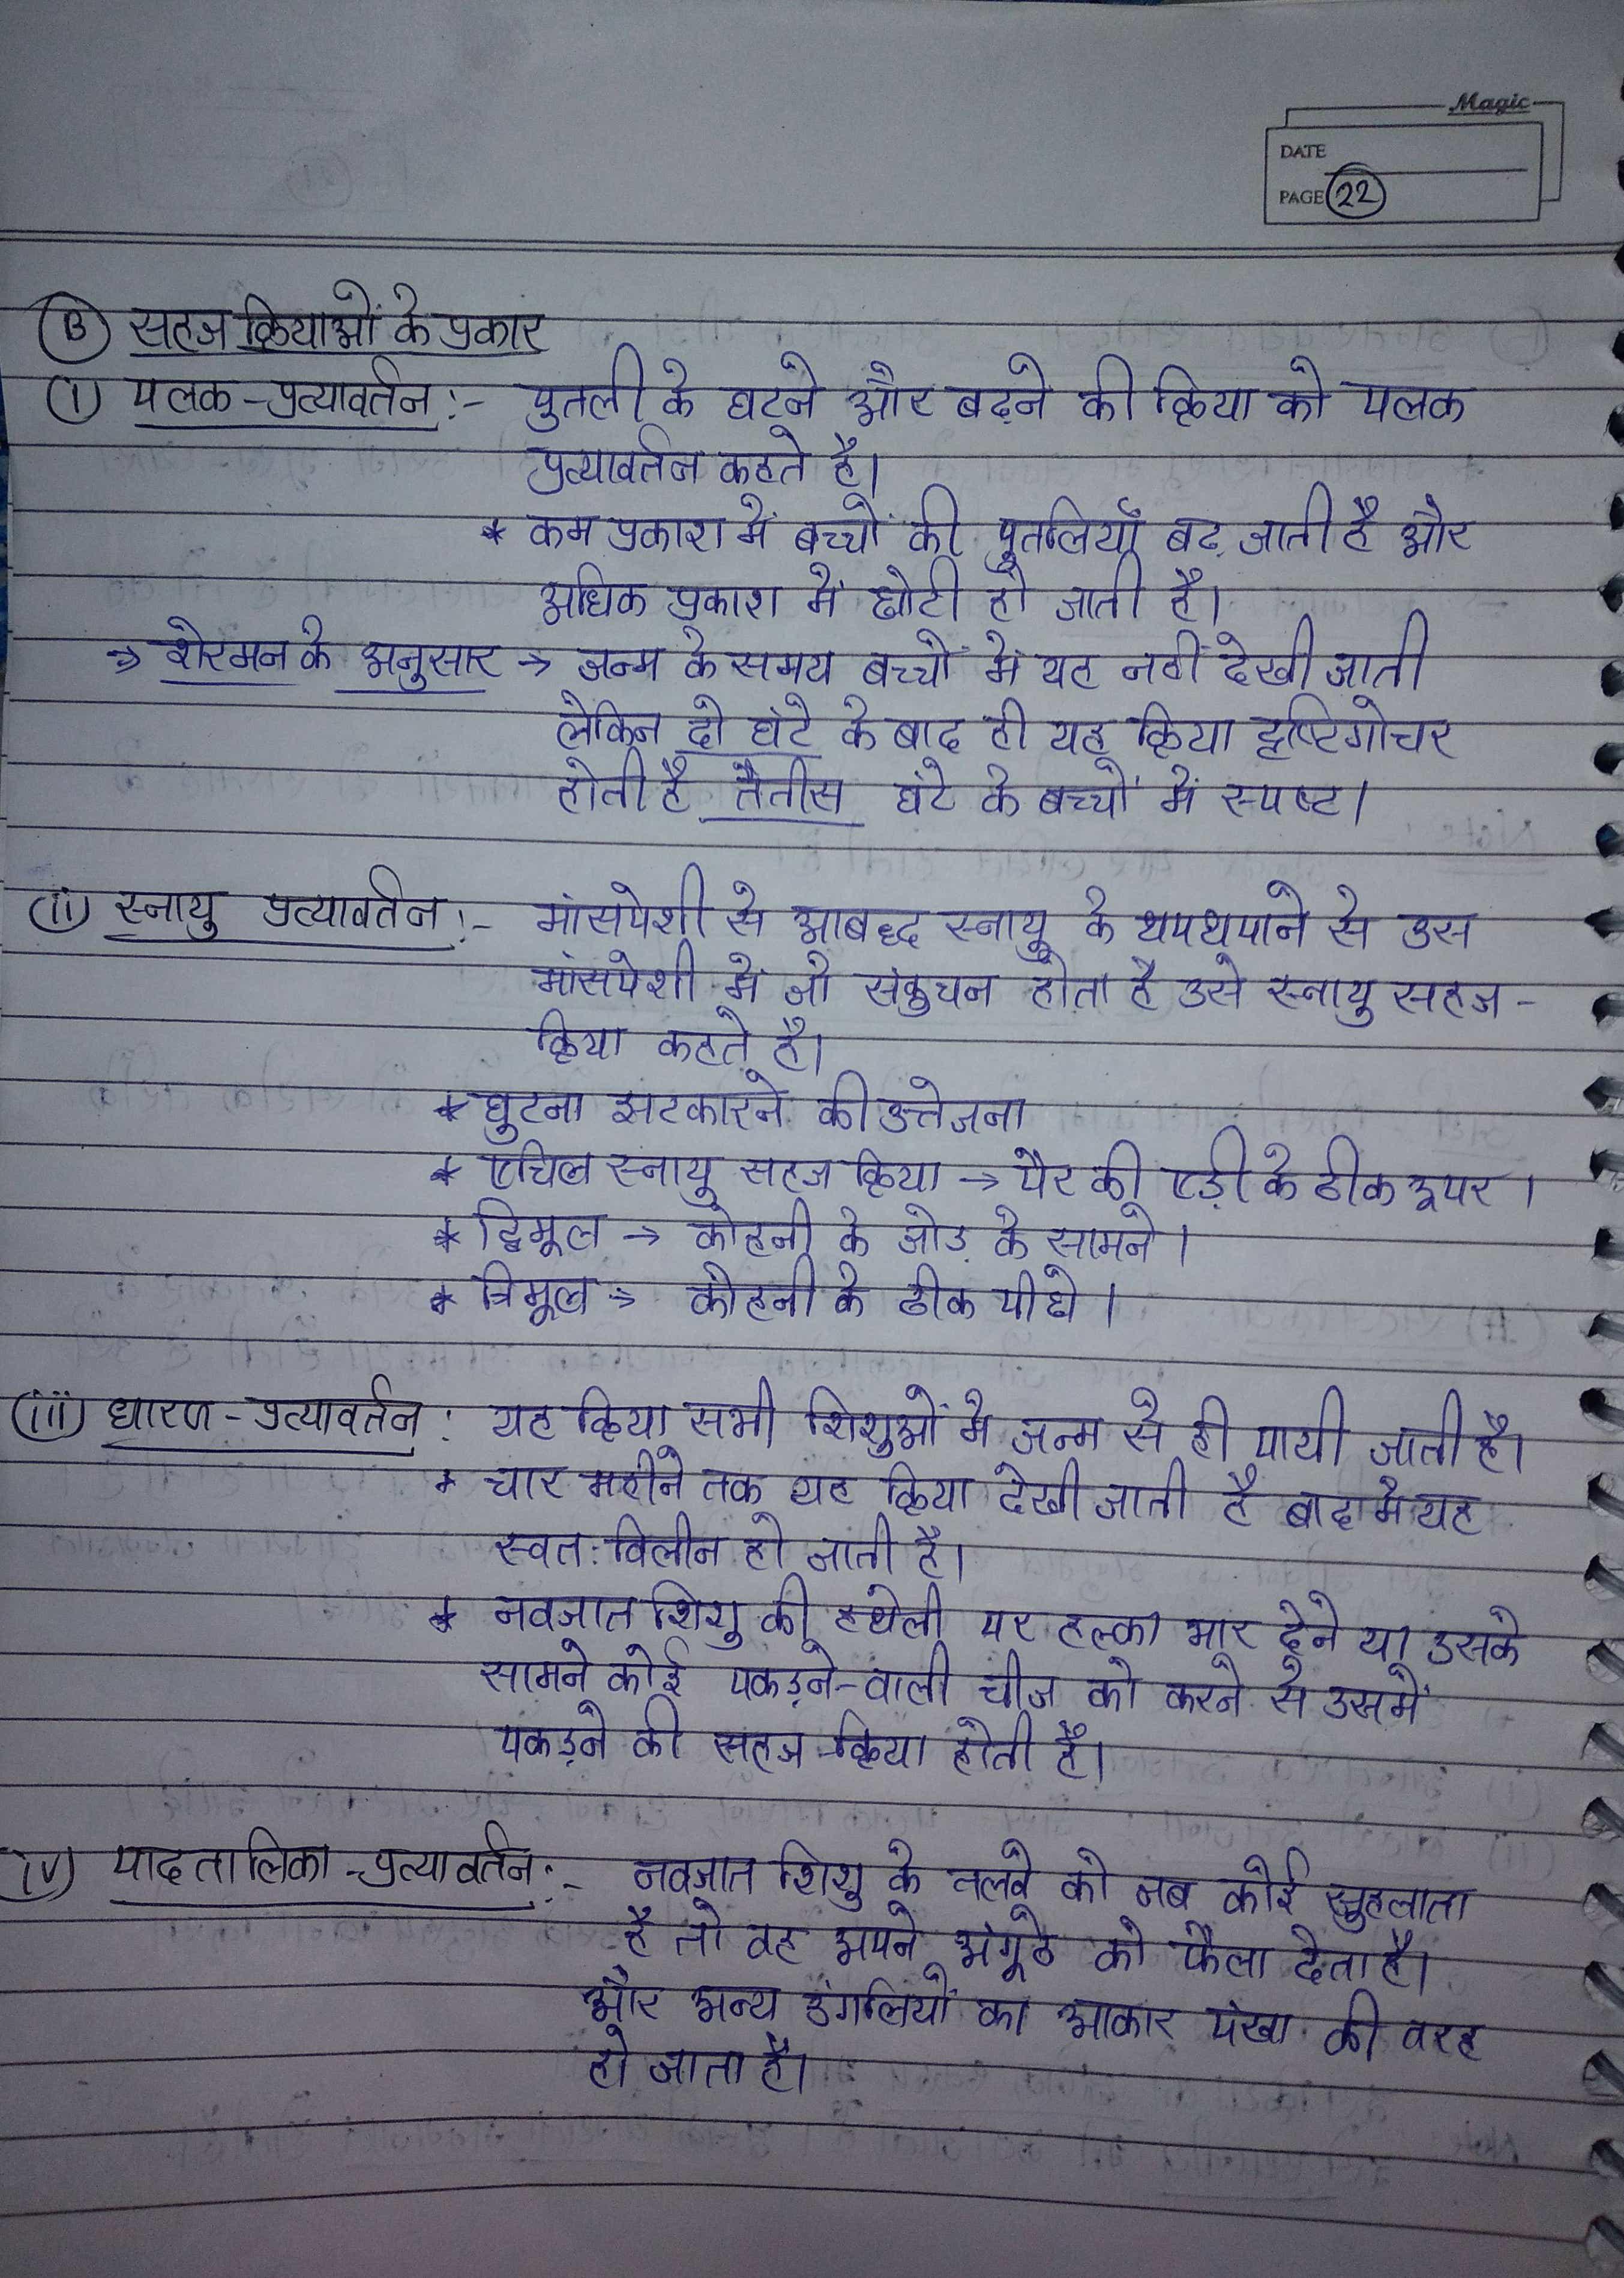 Magic
DATE
PAGE 22
B सहज क्रियाओं के प्रकार
(i) पलक-प्रत्यावर्तन :- पुतली के घटने और बढ़ने की क्रिया को पलक
प्रत्यावर्तन कहते है।
* कम प्रकाश में बच्चों की पुतलियाँ बढ़ जाती है और
अधिक प्रकाश में छोटी हो जाती है।
→ शेरमन के अनुसार → जन्म के समय बच्चों में यह नहीं देखी जाती
लेकिन दो घंटे के बाद ही यह क्रिया दृष्टिगोचर
होती है तैतीस घंटे के बच्चों में स्पष्ट।
(ii) स्नायु प्रत्यावर्तन :- मांसपेशी से आबद्ध स्नायु के थपथपाने से उस
मांसपेशी में जो संकुचन होता है उसे स्नायु सहज-
क्रिया कहते है।
* घुटना झटकारने की उत्तेजना
* एचिल स्नायु सहज क्रिया → पैर की एड़ी के ठीक ऊपर।
* द्विमूल → कोहनी के जोड़ के सामने।
* त्रिमूल → कोहनी के ठीक पीछे।
(iii) धारण-प्रत्यावर्तन : यह क्रिया सभी शिशुओं में जन्म से ही पायी जाती है।
* चार महीने तक यह क्रिया देखी जाती है बाद मे यह
स्वत: विलीन हो जाती है।
* नवजात शिशु की हथेली पर हल्का भार देने या उसके
सामने कोई पकड़ने-वाली चीज को करने से उसमें
पकड़ने की सहज-क्रिया होती है।
(iv) पादतालिका-प्रत्यावर्तन :- नवजात शिशु के तलवे को जब कोई सुहलाता
है तो वह अपने अंगूठे को फैला देता है।
और अन्य उंगलियों का आकार पंखा की तरह
हो जाता है।